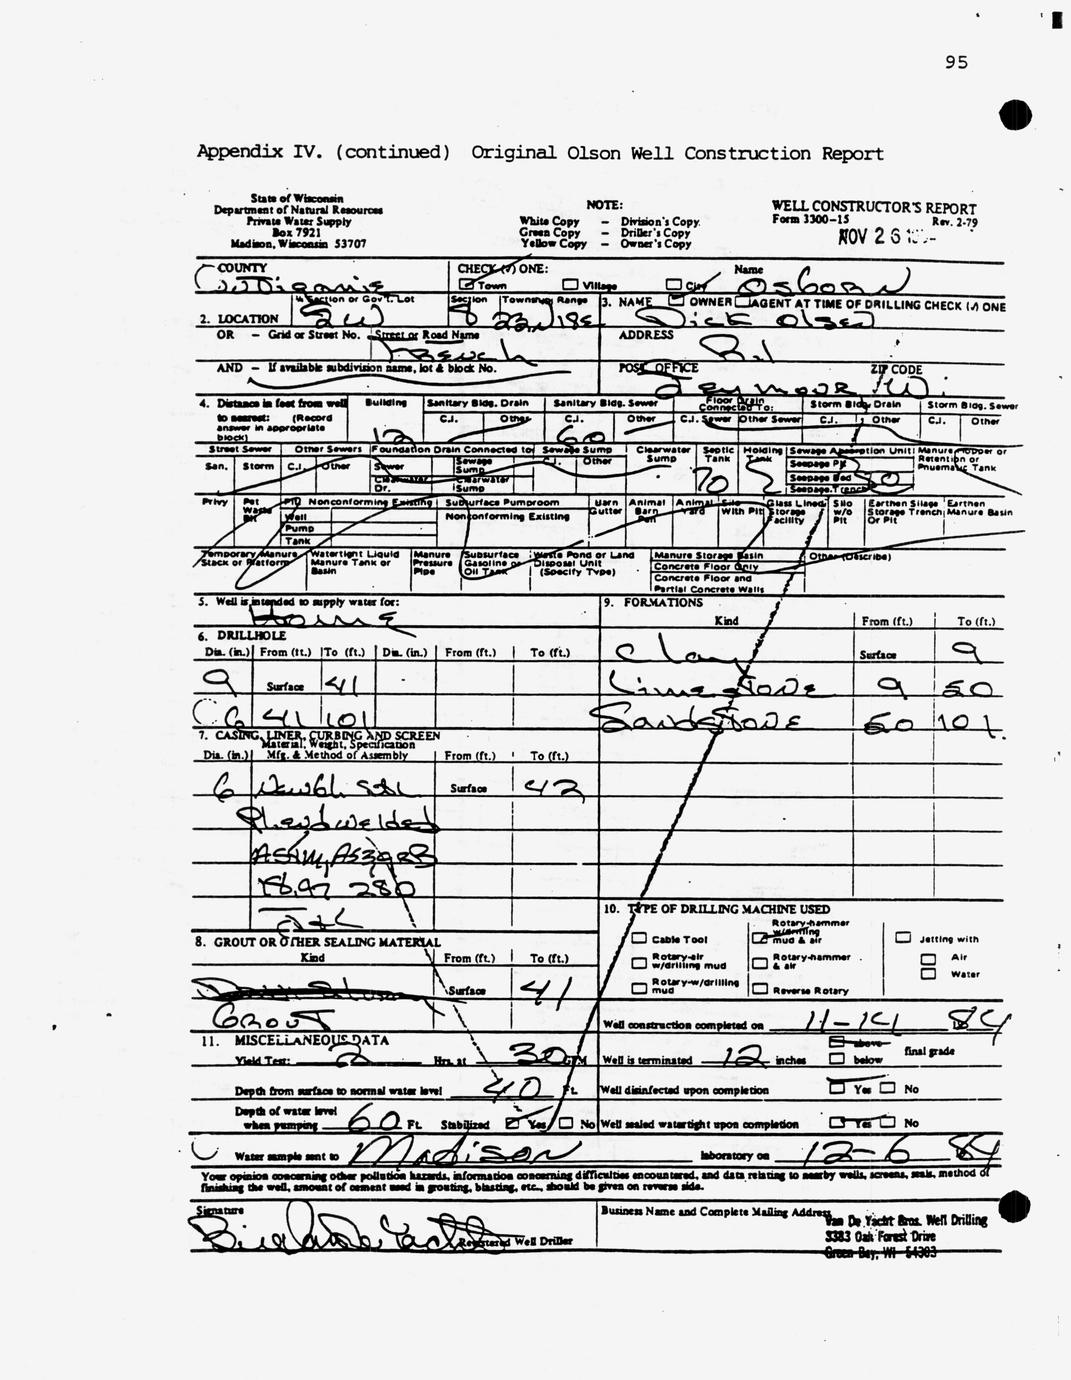 95
Appendix IV. (continued) Original Olson Well Construction Report
State of Wisconsin
Department of Natural Resources
Private Water Supply
Box 7921
Madison, Wisconsin 53707
NOTE:
White Copy – Division's Copy
Green Copy – Driller's Copy
Yellow Copy – Owner's Copy
WELL CONSTRUCTOR'S REPORT
Form 3300-15 Rev. 2-79
NOV 26
COUNTY CHECK (✓) ONE: Name
Town Village City Osborn
¼ Section or Gov't. Lot Section Township Range 3. NAME OWNER AGENT AT TIME OF DRILLING CHECK (✓) ONE
2. LOCATION SW 8 23N 18E Dick Olsen
OR – Grid or Street No. Street or Road Name ADDRESS
French R.1
AND – If available subdivision name, lot & block No. POST OFFICE ZIP CODE
Seymour Wi.
4. Distance in feet from well to nearest: (Record answer in appropriate block)
Building Sanitary Bldg. Drain Sanitary Bldg. Sewer Floor Drain Connected To: Storm Bldg. Drain Storm Bldg. Sewer
C.I. Other C.I. Other C.I. Sewer Other Sewer C.I. Other C.I. Other
12 60
Street Sewer Other Sewers Foundation Drain Connected to Sewage Sump Clearwater Sump Septic Tank Holding Tank Sewage Absorption Unit Manure Hopper or Retention or Pneumatic Tank
San. Storm C.I. Other Sewer Sewage Sump C.I. Other Seepage Pit
Clearwater Dr. Clearwater Sump 70 Seepage Bed 80
Seepage Trench
Privy Pet Waste Pit Pit Nonconforming Existing Subsurface Pumproom Barn Gutter Animal Barn Pen Animal Yard Silo With Pit Glass Lined Storage Facility Silo w/o Pit Earthen Silage Storage Trench Or Pit Earthen Manure Basin
Well Nonconforming Existing
Pump
Tank
Temporary Manure Stack or Platform Watertight Liquid Manure Tank or Basin Manure Pressure Pipe Subsurface Gasoline or Oil Tank Waste Pond or Land Disposal Unit (Specify Type) Manure Storage Basin Other (Describe)
Concrete Floor Only
Concrete Floor and Partial Concrete Walls
5. Well is intended to supply water for:
Home
6. DRILLHOLE
Dia. (in.) From (ft.) To (ft.) Dia. (in.) From (ft.) To (ft.)
9 Surface 41
6 41 101
7. CASING, LINER, CURBING AND SCREEN
Material, Weight, Specification
Dia. (in.) Mfg. & Method of Assembly From (ft.) To (ft.)
6 Surface 42
welded
18.97 280
8. GROUT OR OTHER SEALING MATERIAL
Kind From (ft.) To (ft.)
Surface 41
Grout
9. FORMATIONS
Kind From (ft.) To (ft.)
Clay Surface 9
Limestone 9 60
Sandstone 60 101
10. TYPE OF DRILLING MACHINE USED
Cable Tool Rotary-hammer w/drilling mud & air Jetting with
Rotary-air w/drilling mud Rotary-hammer & air Air
Rotary-w/drilling mud Reverse Rotary Water
Well construction completed on 11-14 84
11. MISCELLANEOUS DATA
Yield Test: 2 Hrs. at 30 GPM
Well is terminated 12 inches above below final grade
Depth from surface to normal water level 40 Ft.
Well disinfected upon completion Yes No
Depth of water level when pumping 60 Ft. Stabilized Yes No
Well sealed watertight upon completion Yes No
Water sample sent to Madison laboratory on 12-6 84
Your opinion concerning other pollution hazards, information concerning difficulties encountered, and data relating to nearby wells, screens, seals, method of
finishing the well, amount of cement used in grouting, blasting, etc., should be given on reverse side.
Signature
Registered Well Driller
Business Name and Complete Mailing Address
Van De Yacht Bros. Well Drilling
3383 Oak Forest Drive
Green Bay, WI 54303